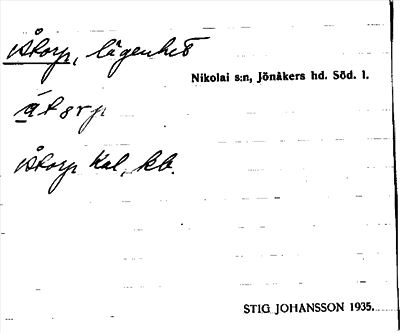 Åtorp, lägenhet
Nikolai s:n, Jönåkers hd. Söd. l.
Åtorp Kal, kb.
STIG JOHANSSON 1935.